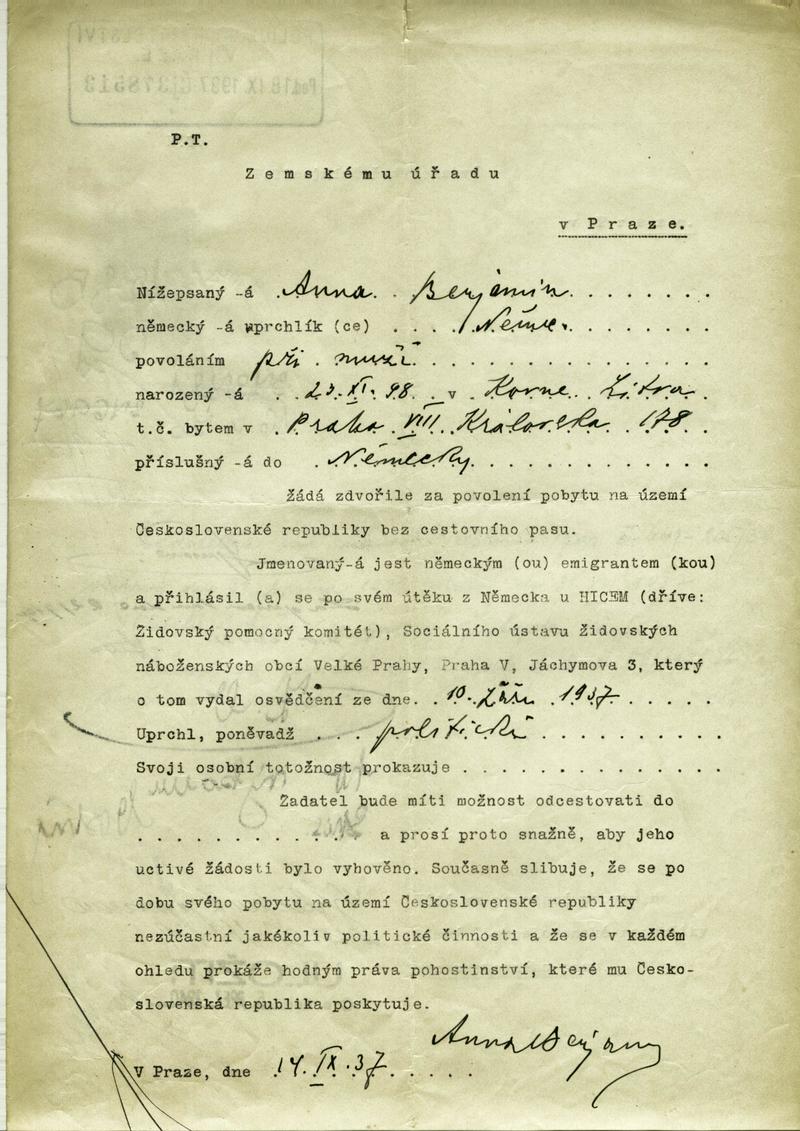 P.T.
Zemskému úřadu
v Praze.
Nížepsaný -á . Anna . . Benjamin . . . . . . . .
německý -á uprchlík (ce) . . . . Němec . . . . . . . .
povoláním při . muži . . . . . . . . . . . . . . .
narozený -á . . 23. XI. 98 . . v . Korne . . Žitra .
t.č. bytem v . Praha VIII Královská . 178 . .
příslušný -á do . Německy . . . . . . . . . . . .
žádá zdvořile za povolení pobytu na území
Československé republiky bez cestovního pasu.
Jmenovaný-á jest německým (ou) emigrantem (kou)
a přihlásil (a) se po svém útěku z Německa u HICEM (dříve:
Židovský pomocný komitét), Sociálního ústavu židovských
náboženských obcí Velké Prahy, Praha V, Jáchymova 3, který
o tom vydal osvědčení ze dne. . 10. září . 1937 . . . . .
Uprchl, poněvadž . . . politický . . . . . . . . . .
Svoji osobní totožnost prokazuje . . . . . . . . . . . . .
Žadatel bude míti možnost odcestovati do
. . . . . . . . . . . . a prosí proto snažně, aby jeho
uctivé žádosti bylo vyhověno. Současně slibuje, že se po
dobu svého pobytu na území Československé republiky
nezúčastní jakékoliv politické činnosti a že se v každém
ohledu prokáže hodným práva pohostinství, které mu Česko-
slovenská republika poskytuje.
Anna Benjamin
V Praze, dne . 14. IX. 37 . . . . .